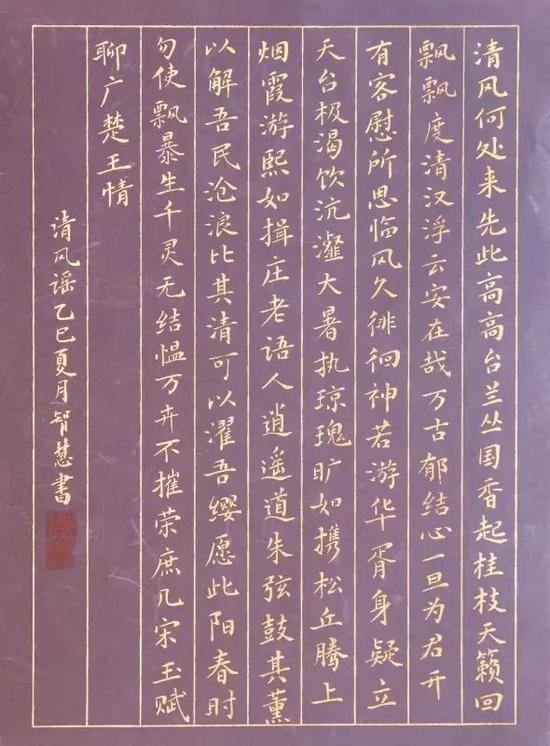 清风何处来先此高高台兰丛国香起桂枝天籁回
飘飘度清汉浮云安在哉万古郁结心一旦为君开
有客慰所思临风久徘徊神若游华胥身疑立
天台极渴饮沆瀣大暑执琼瑰旷如携松丘腾上
烟霞游熙如揖庄老语人逍遥道朱弦鼓其薰
以解吾民沧浪比其清可以濯吾缨愿此阳春时
勿使飘暴生千灵无结愠万卉不摧荣庶几宋玉赋
聊广楚王情
清风谣乙巳夏月智慧书